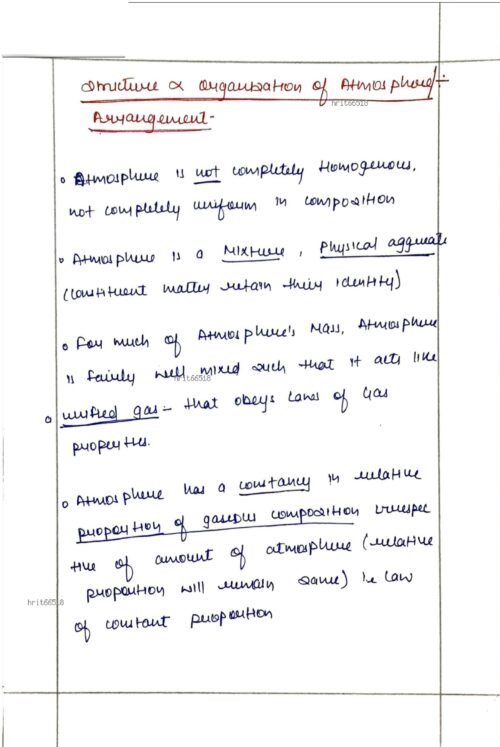 Structure & organisation of Atmosphere/:-
hrit66518
Arrangement-
• Atmosphere is not completely Homogenous,
not completely uniform in composition
• Atmosphere is a Mixture, Physical aggregate
(constituent matter retain their identity)
• For much of Atmosphere's Mass, Atmosphere
is fairly well mixed such that it acts like
hrit66518
• unified gas - that obeys Laws of Gas
properties.
• Atmosphere has a constancy in relative
proportion of gaseous composition irrespec
tive of amount of atmosphere (relative
proportion will remain same) ie law
hrit66518
of constant proportion